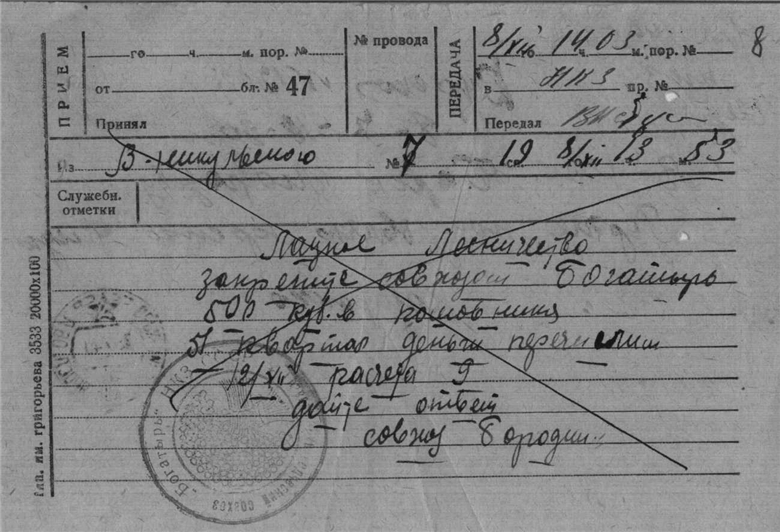 ПРИЕМ
го ч. м. пор. №
от бл. № 47
Принял
№ провода
ПЕРЕДАЧА
8/XII го 14 ч. 03 м. пор. №
в НКЗ пр. №
Передал
8
Из В-Никульского № 7 19 сл. 8/XII го 13 ч. 53 м.
Служебн.
отметки
Лесничество
закрепите совхозом Богатырь
500 куб. в
51 квартал деньги перечислим
12/XII расчета 9
дайте ответ
совхоз Бородин
Тип. им. григорьева 3533 20000х100
"Богатырь" НКЗ
совхоз